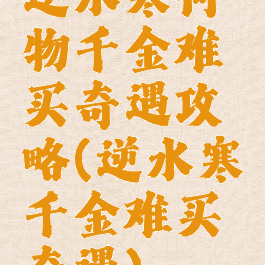 逆水寒何
物千金难
买奇遇攻
略(逆水寒
千金难买
奇遇)